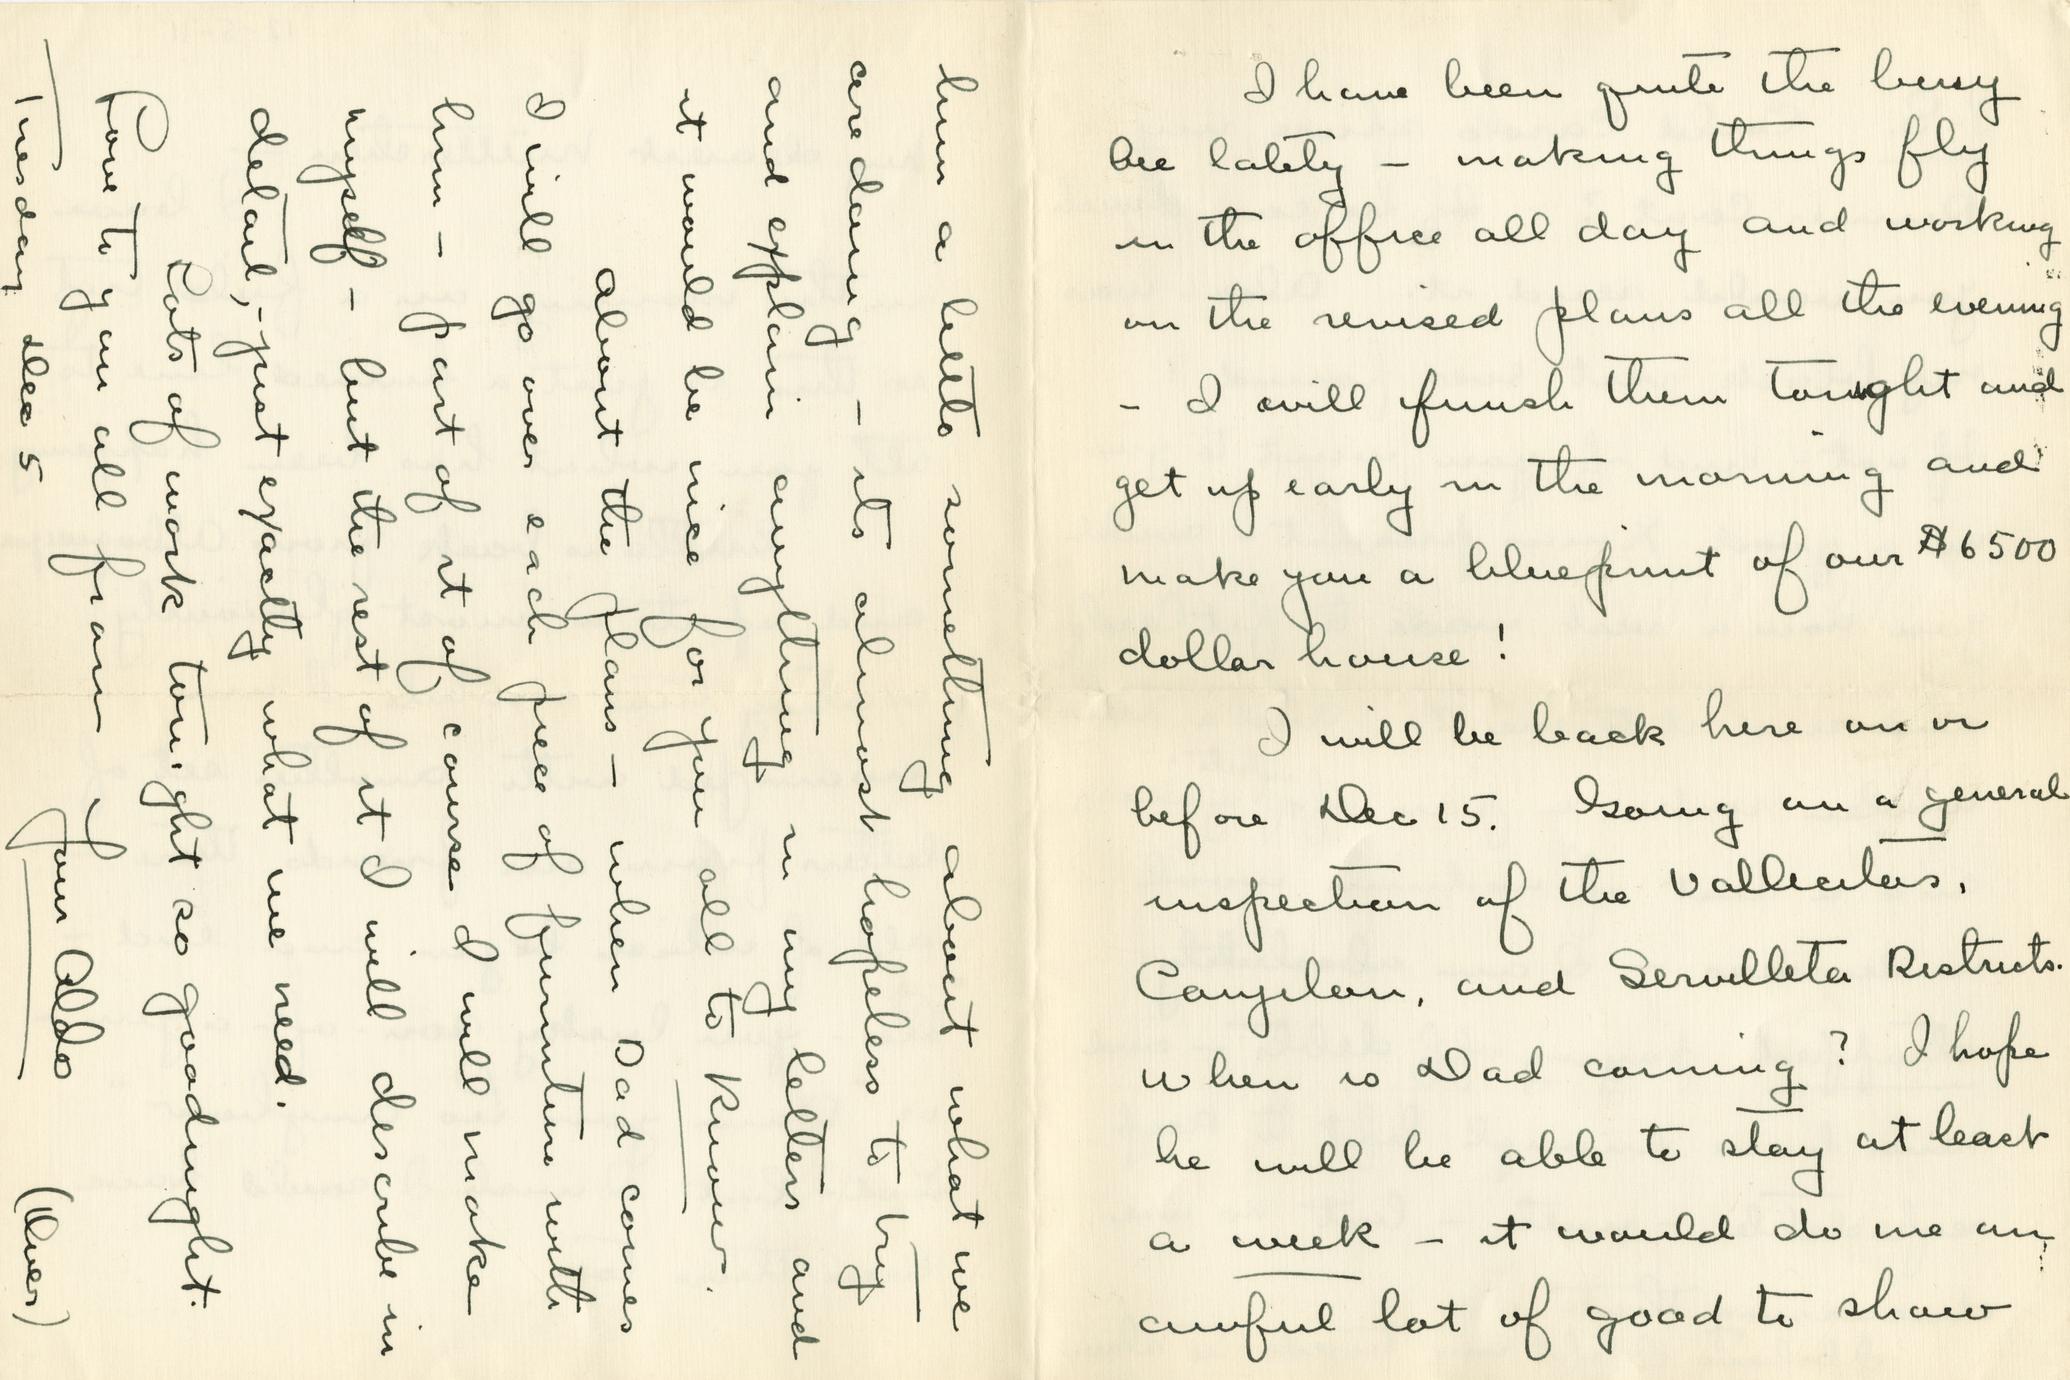 I have been quite the busy
bee lately – making things fly
in the office all day and working
on the revised plans all the evening
– I will finish them tonight and
get up early in the morning and
make you a blueprint of our $6500
dollar house!
I will be back here on or
before Dec 15. Going on a general
inspection of the Vallecitos,
Canjilon, and Servilleta Districts.
When is Dad coming? I hope
he will be able to stay at least
a week – it would do me an
awful lot of good to show
him a little something about what we
are doing – its almost hopeless to try
and explain anything in my letters and
it would be nice for you all to know.
About the plans – when Dad comes
I will go over each piece of furniture with
him – part of it of course I will make
myself – but the rest of it I will describe in
detail, – just exactly what we need.
Lots of work tonight so goodnight.
Love to you all from
Your Aldo
Tuesday Dec 5 (Over)